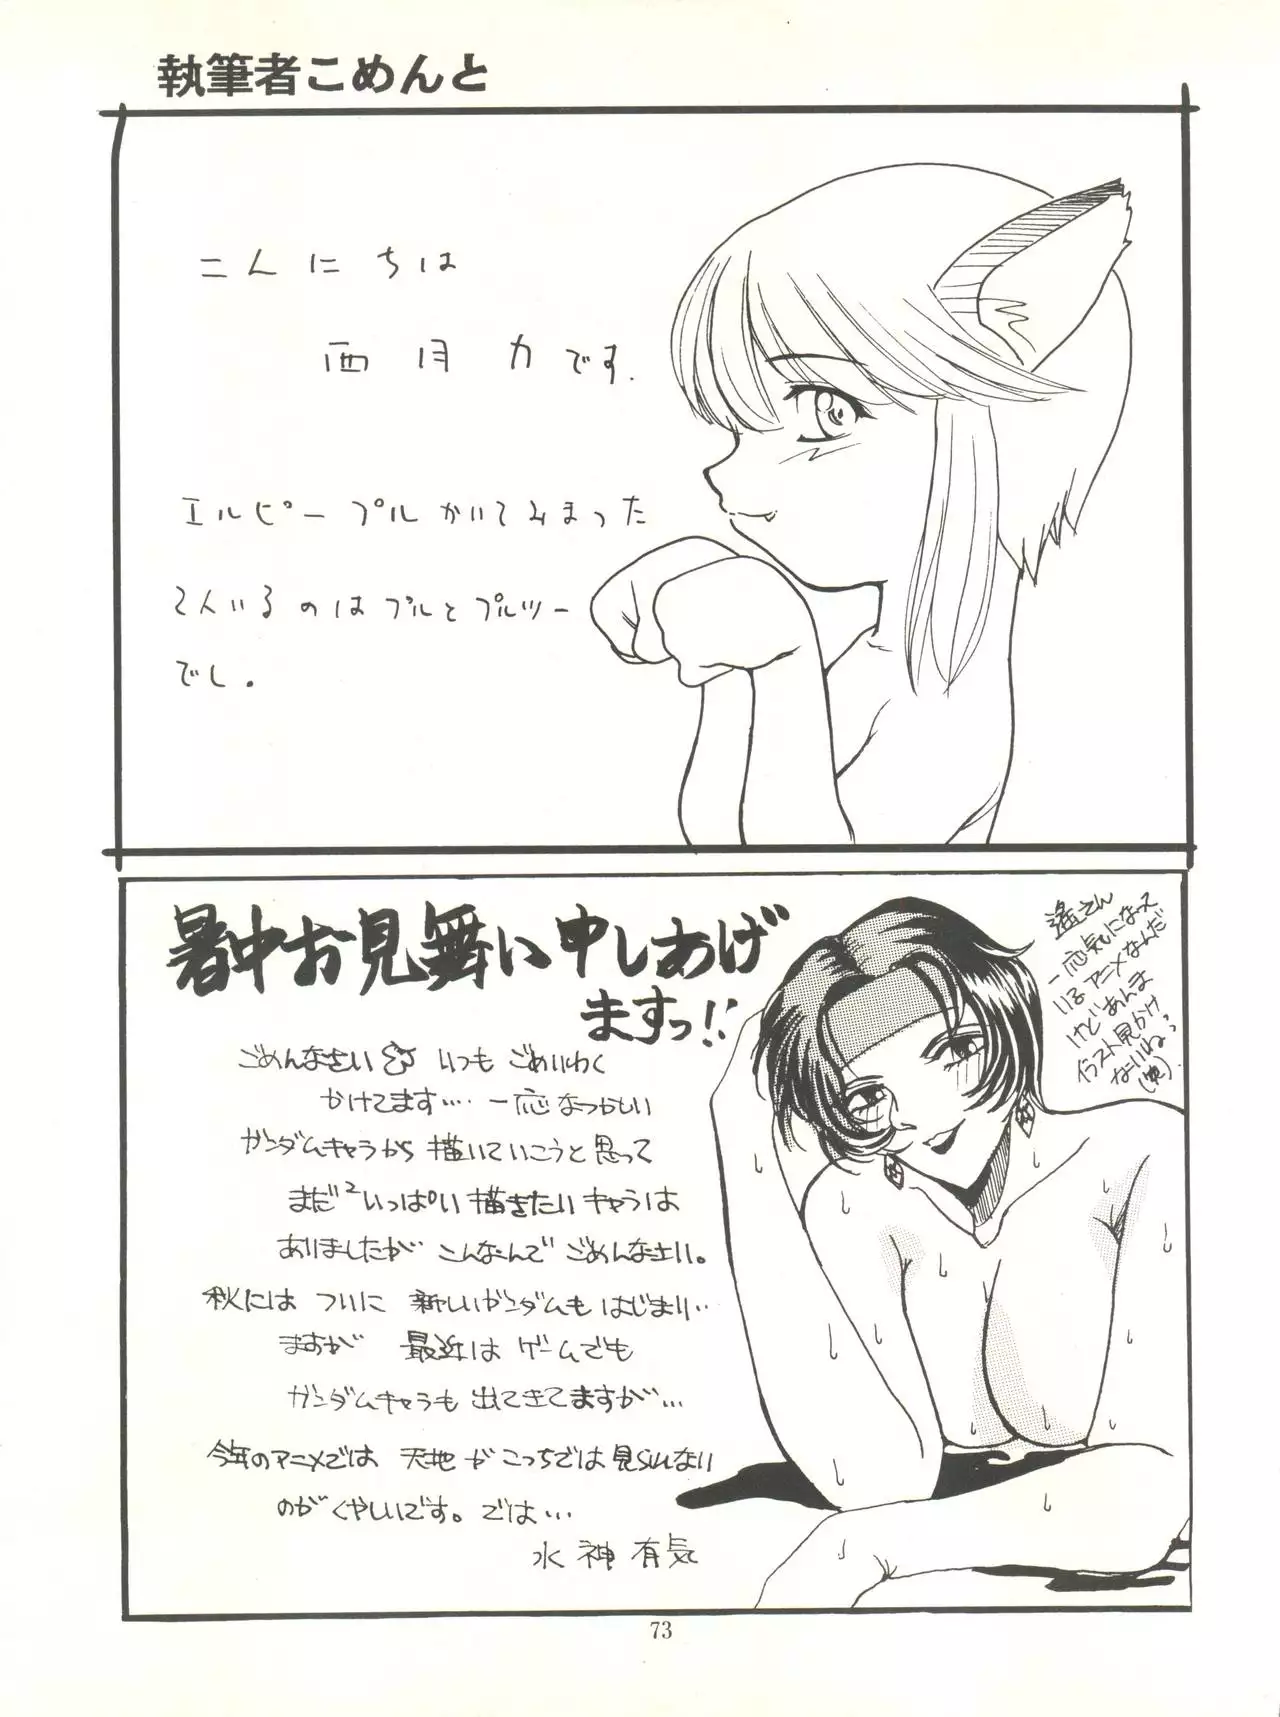 執筆者こめんと
こんにちは
西月力です.
エルピープルかいてみまった
2人いるのはプルとプルツー
でし。
暑中お見舞い申しあげ
ますっ!!
ごめんなさい いつも ごめいわく
かけてます… 一応なつかしい
ガンダムキャラから 描いていこうと思って
まだ²いっぱい 描きたい キャラは
ありましたが こんなんで ごめんなさい。
秋には ついに 新しいガンダムも はじまり‥
ますが 最近は ゲームでも
ガンダムキャラも 出てきてますが…
今年のアニメでは 天地が こっちでは見られない
のが くやしいです。では…
水神 有気
遙さん
一応気になって
いる アニメなんだ
けど あんま
イラスト見かけ
ないねっ
73